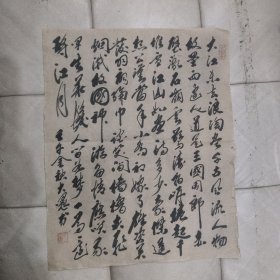 大江東去浪淘盡千古風流人物
故壘西邊人道是三國周郎赤
壁亂石崩雲驚濤拍岸捲起千
堆雪江山如畫一時多少豪傑遙
想公瑾當年小喬初嫁了雄姿英
發羽扇綸巾談笑間檣櫓灰飛
煙滅故國神遊多情應笑我
早生華髮人間如夢一尊還
酹江月